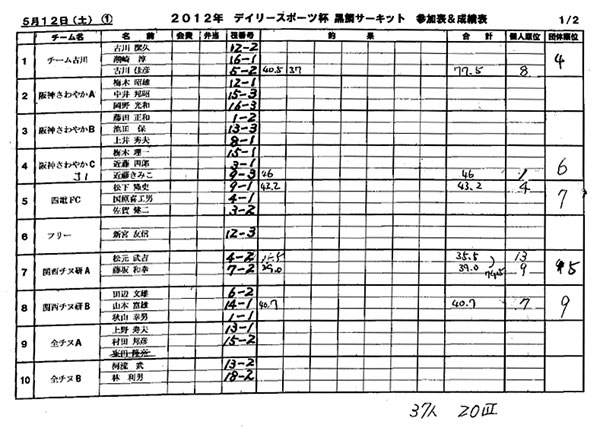 5月12日(土) ① 2012年 デイリースポーツ杯 黒鯛サーキット 参加表&成績表 1/2
チーム名 名前 会費 弁当 筏番号 釣果 合計 個人順位 団体順位
1 チーム古川 古川 潔久 12-2 4
潮崎 淳 16-1
古川 佳彦 5-2 40.5 37 77.5 8
2 阪神さわやかA 梅木 昭雄 12-1
中井 邦昭 15-3
岡野 光和 16-3
3 阪神さわやかB 藤田 正和 1-2
池田 保 13-3
上井 秀夫 8-1
4 阪神さわやかC 梅木 理一 15-1 6
近藤 四郎 3-1
近藤きみこ 9-3 46 46 1
5 四電FC 松下 隆史 9-1 43.2 43.2 4 7
国原喜工男 4-1
佐賀 健二 3-2
6 フリー 新宮 友信 12-3
7 関西チヌ研A 松元 武吉 4-2 35.5 13 5
藤坂 和幸 7-2 39.0 39.0 9
74.5
8 関西チヌ研B 田辺 文雄 6-2 9
山本 富雄 14-1 40.7 40.7 7
秋山 幸男 1-1
9 全チヌA 上野 寿夫 13-1
村田 邦彦 15-2
10 全チヌB 河流 武 13-2
林 利男 18-2
37人